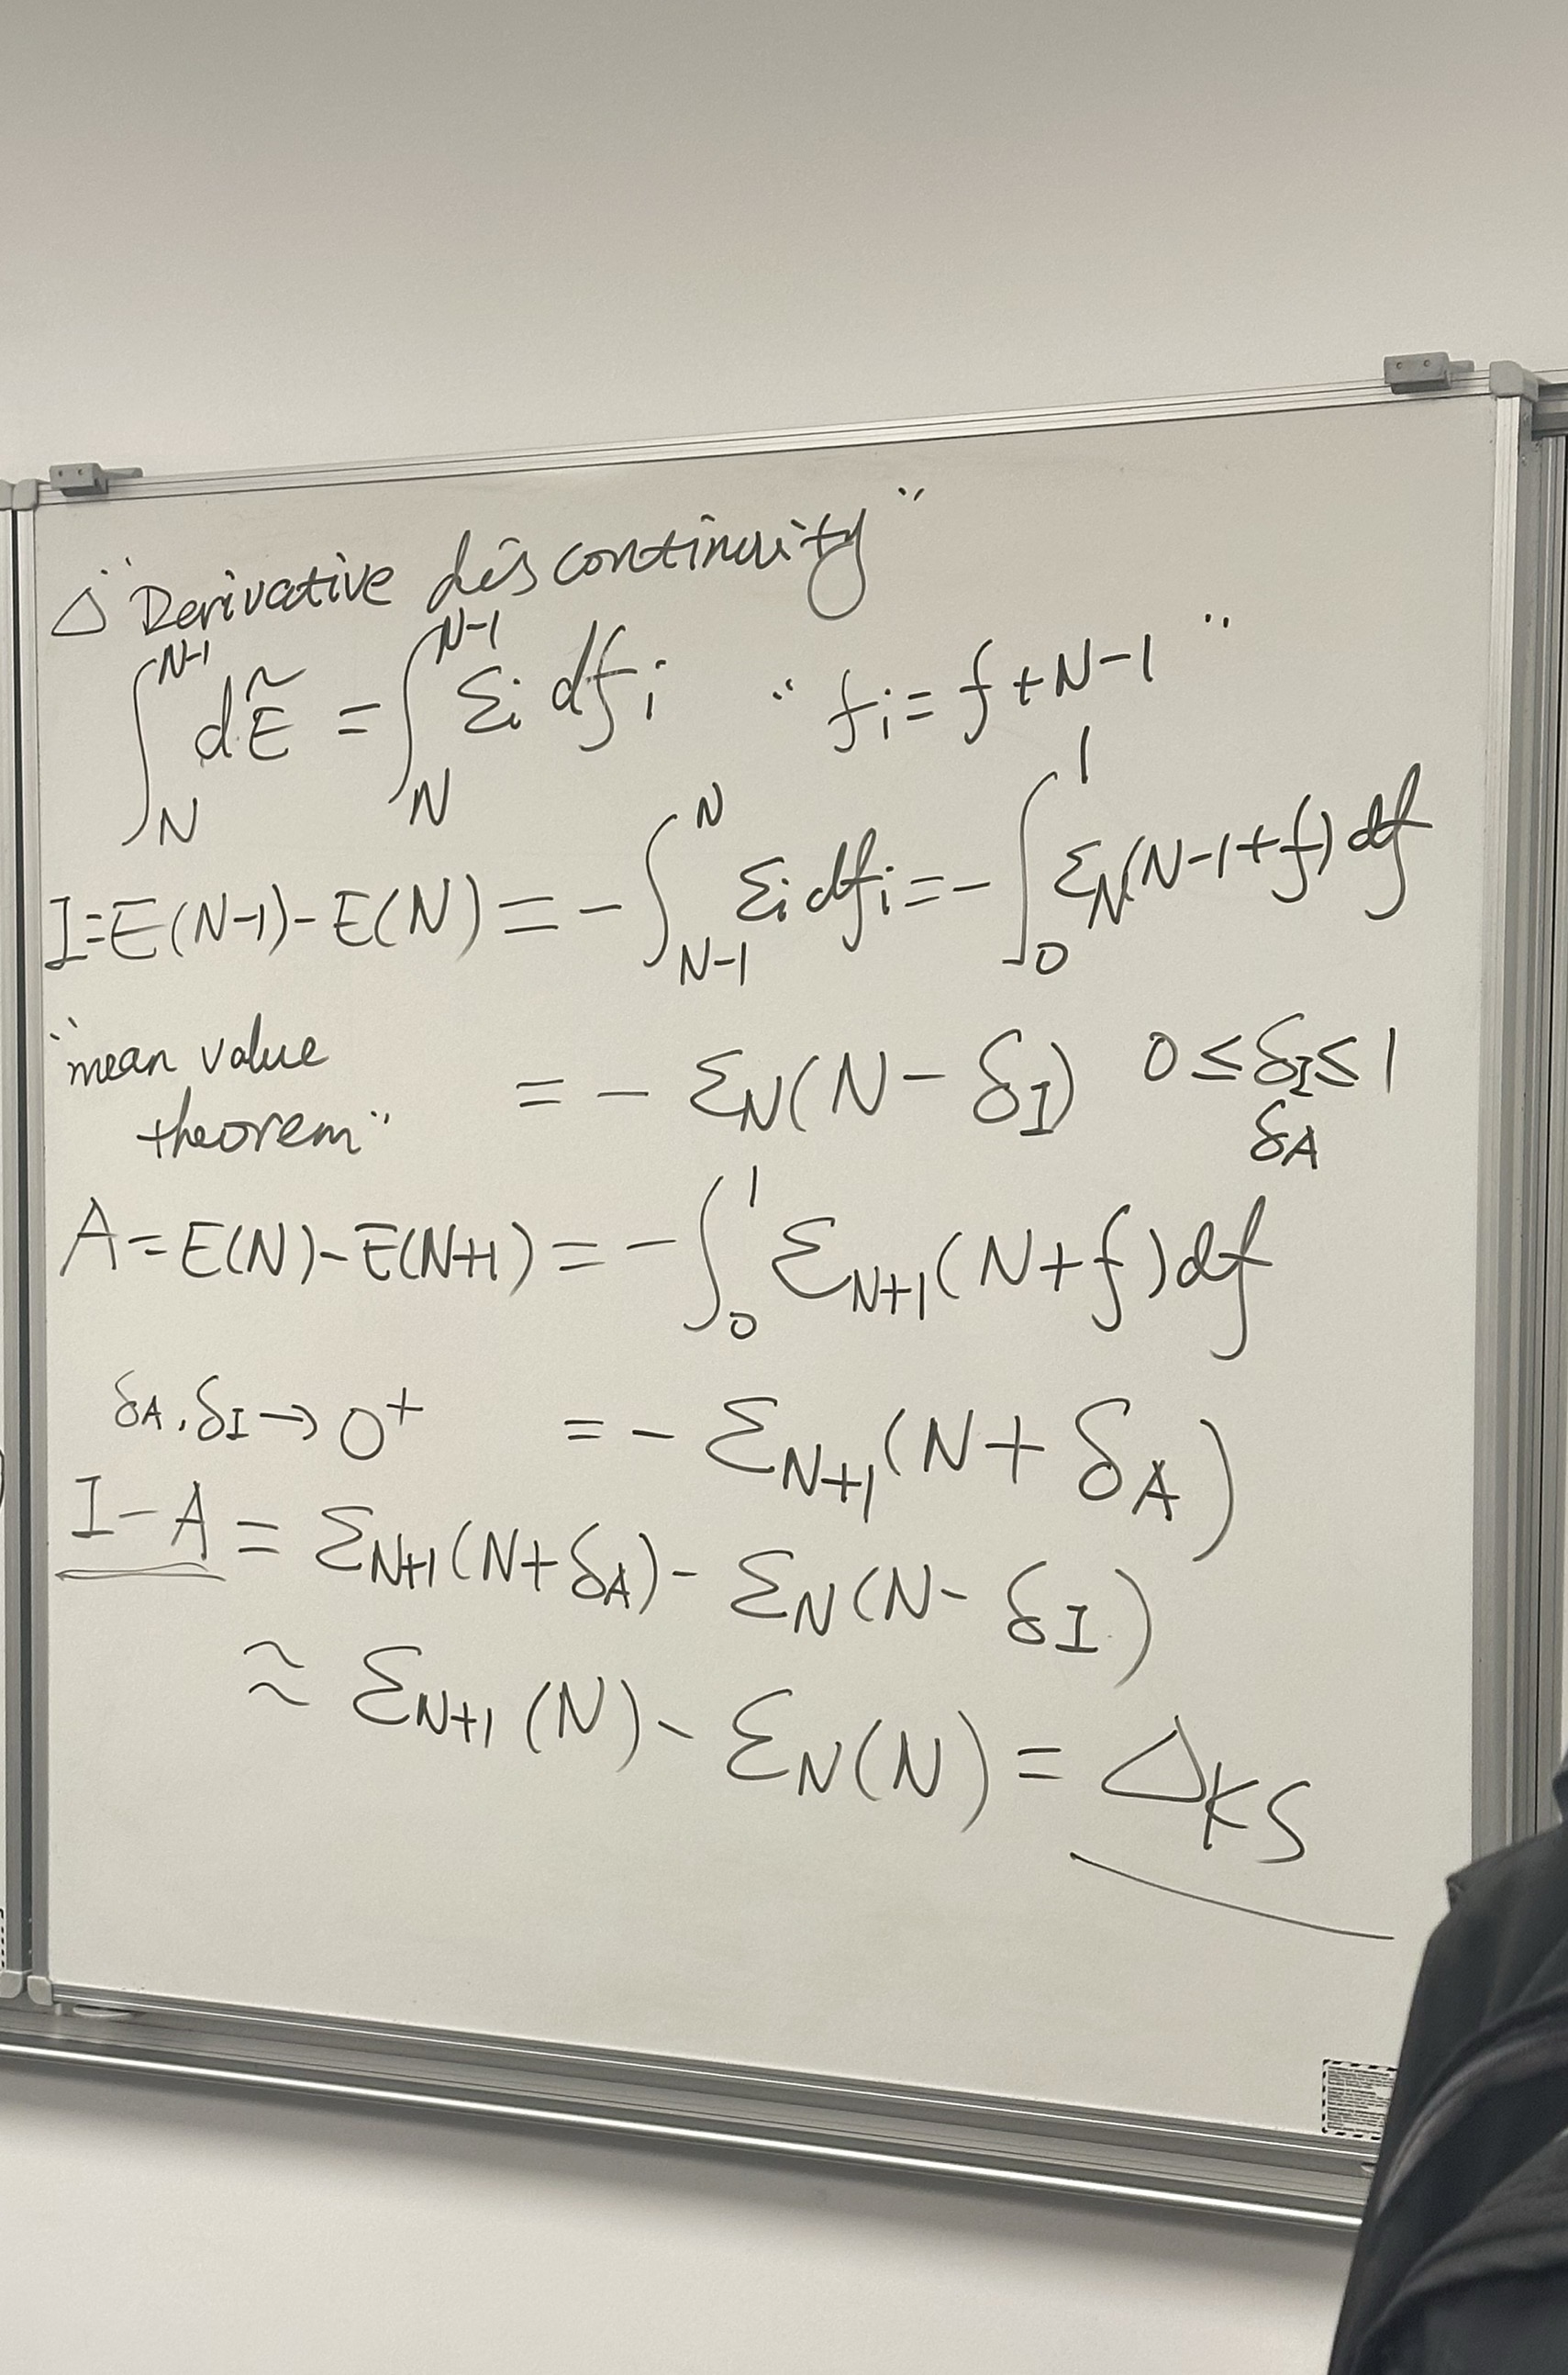 △ "Derivative discontinuity"
∫_N^{N-1} dẼ = ∫_N^{N-1} ε_i df_i " f_i = f + N-1 "
I = E(N-1) - E(N) = - ∫_{N-1}^N ε_i df_i = - ∫_0^1 ε_N(N-1+f) df
"mean value
theorem" = - ε_N(N - δ_I) 0 ≤ δ_I ≤ 1
δ_A
A = E(N) - E(N+1) = - ∫_0^1 ε_{N+1}(N+f) df
δ_A, δ_I → 0^+ = - ε_{N+1}(N + δ_A)
I - A = ε_{N+1}(N + δ_A) - ε_N(N - δ_I)
≈ ε_{N+1}(N) - ε_N(N) = Δ_KS